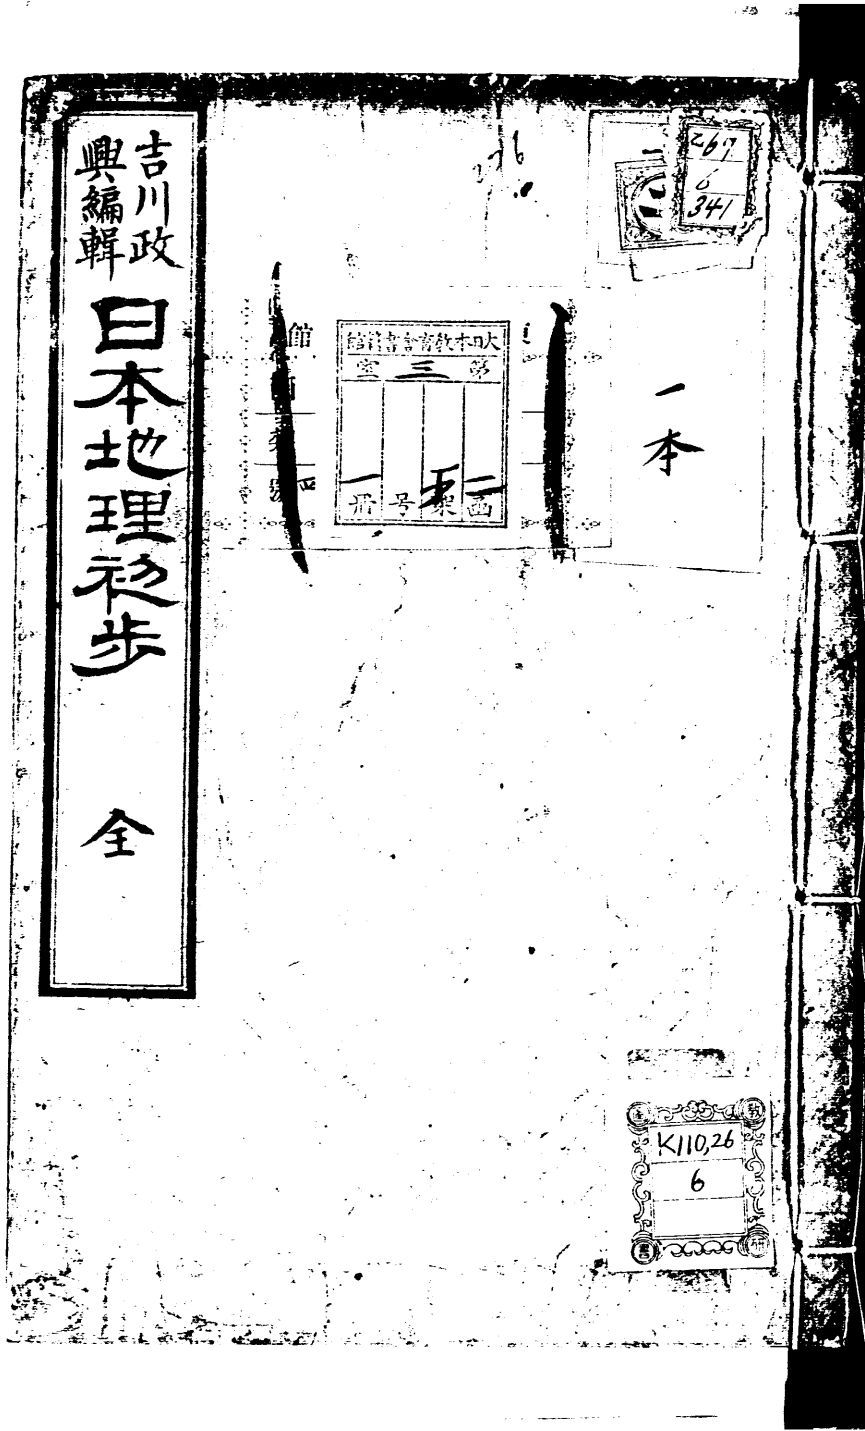 吉川政
興編輯
日本地理初步
全
267
6
341
一本
大日本教育会書籍館
第三室
二函
五架
号
一冊
館
K110,26
6